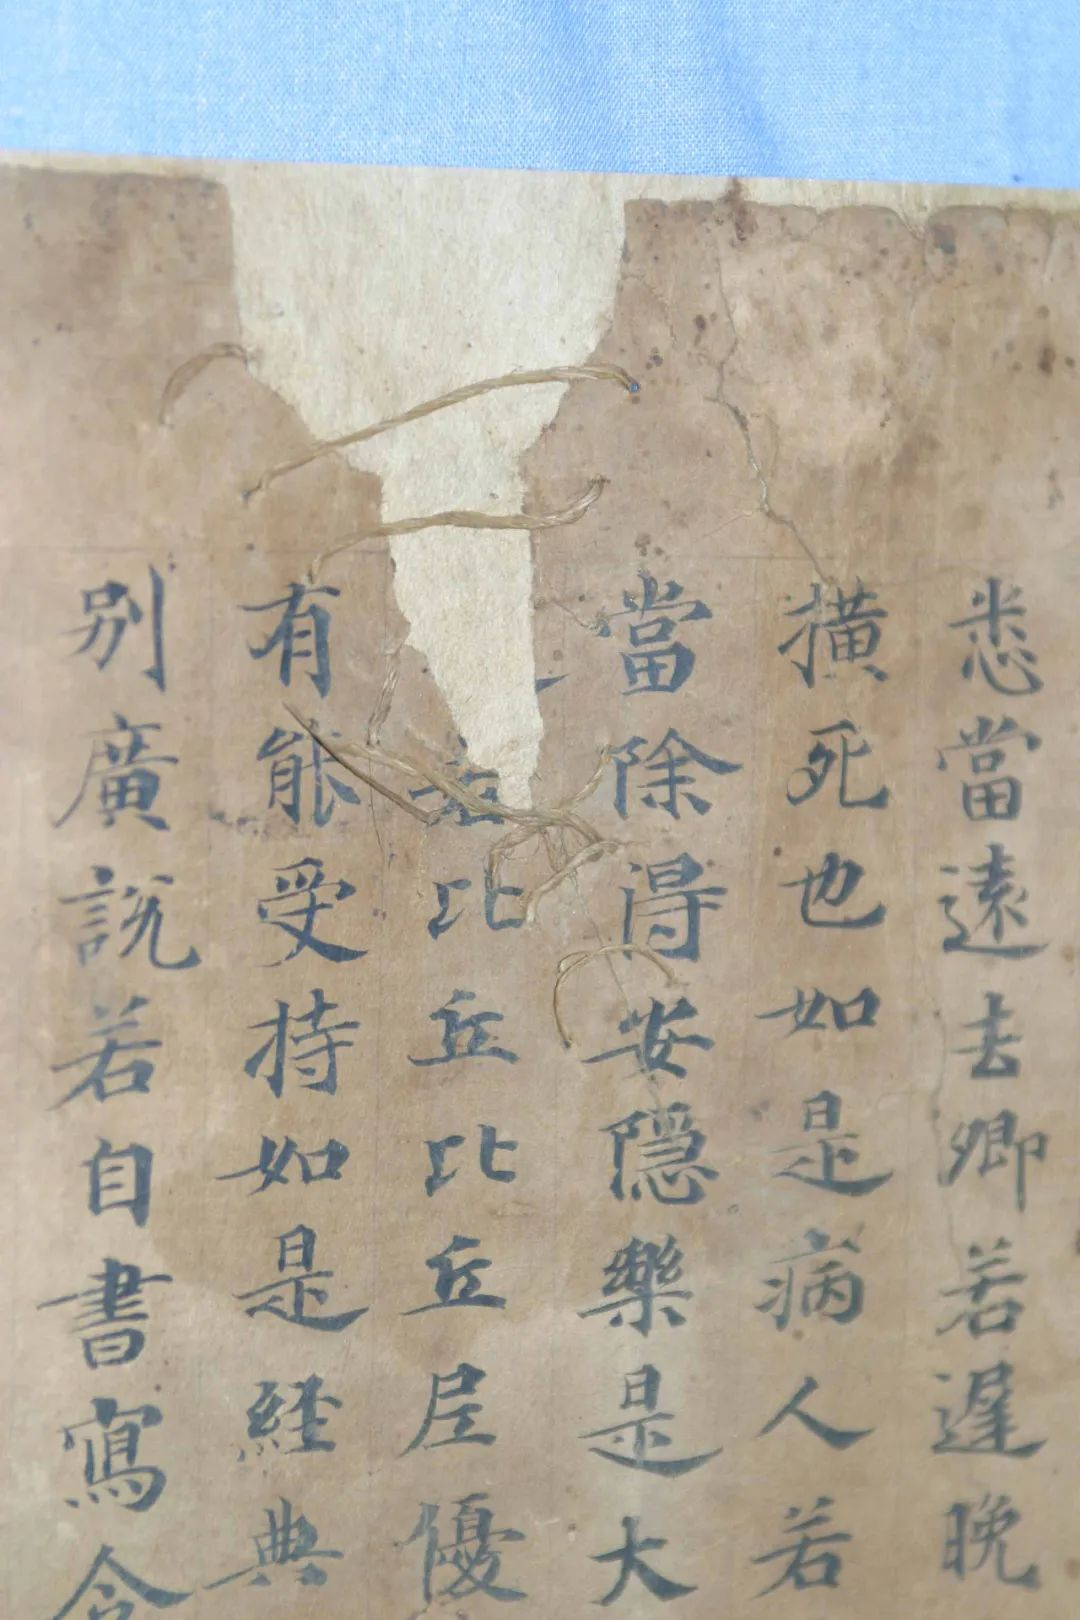 悉當遠去卿若遲晚
横死也如是病人若
當除得安隱樂是大
若比丘比丘尼優
有能受持如是經典
別廣說若自書寫令